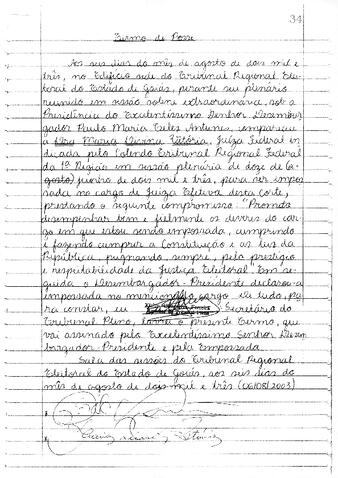 34
Termo de Posse
Aos seis dias do mês de agosto de dois mil e
três, no Edifício sede do Tribunal Regional Elei-
toral do Estado de Goiás, perante seu plenário
reunido em sessão solene extraordinária, sob a
Presidência do Excelentíssimo Senhor Desembar-
gador Paulo Maria Teles Antunes, compareceu
a Dra Maria Divina Vitória, Juíza Federal in-
dicada pelo Colendo Tribunal Regional Federal
da 1ª Região em sessão plenária de doze de (a-
gosto) junho de dois mil e três, para ser empos-
sada no cargo de Juíza Efetiva desta Corte,
prestando o seguinte compromisso: "Prometo
desempenhar bem e fielmente os deveres do car-
go em que estou sendo empossada, cumprindo
e fazendo cumprir a Constituição e as leis da
República, pugnando, sempre, pelo prestígio
e respeitabilidade da Justiça Eleitoral". Em se-
guida o Desembargador-Presidente declarou-a
empossada no mencionado cargo. De tudo, pa-
ra constar, eu Secretário do
Tribunal Pleno, lavrei o presente Termo, que
vai assinado pelo Excelentíssimo Senhor Desem-
bargador-Presidente e pela Empossada.
Sala das sessões do Tribunal Regional
Eleitoral do Estado de Goiás, aos seis dias do
mês de agosto de dois mil e três (06/08/2003)